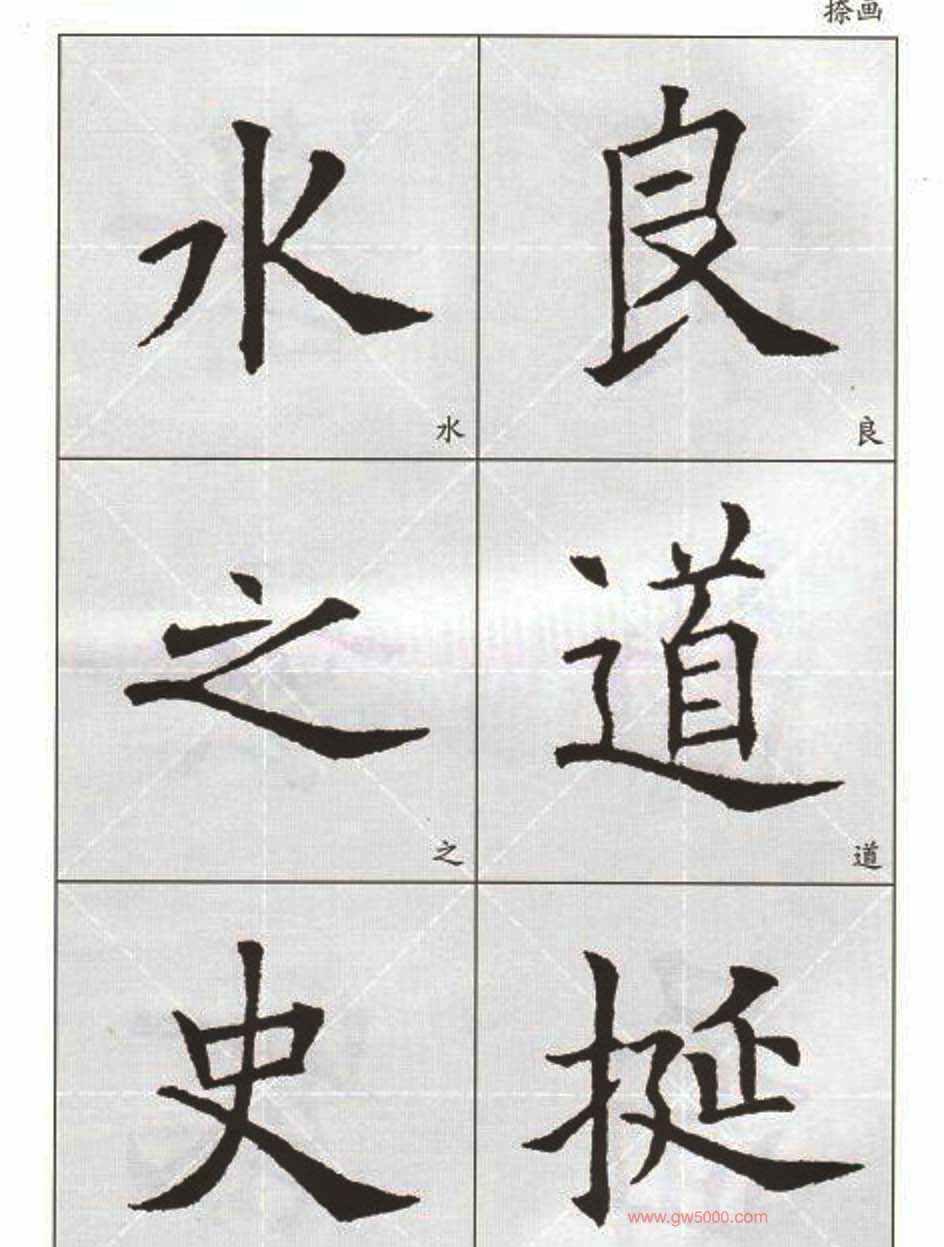 捺画
水 良
水 良
之 道
之 道
史 挺
www.gw5000.com